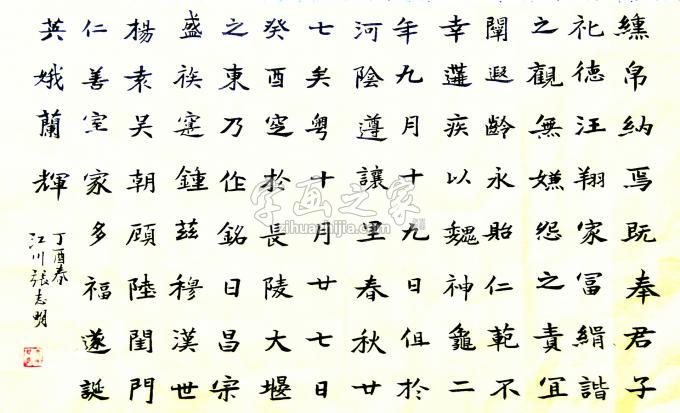 纁帛納焉既奉君子
礼德汪翔家冨緝諧
之觀無嫌怨之責冝
闡遐齡永貽仁範不
幸遘疾以魏神龜二
年九月十九日徂於
河陰遵讓里春秋廿
七矣粤十月廿七日
癸酉窆於長陵大堰
之東乃作銘曰昌宗
盛族寔鍾兹穆漢世
楊袁吴朝顧陸閨門
仁善室家多福遂誕
英娥蘭輝
丁酉春
江川張志明
字画之家
zihuazhijia.com